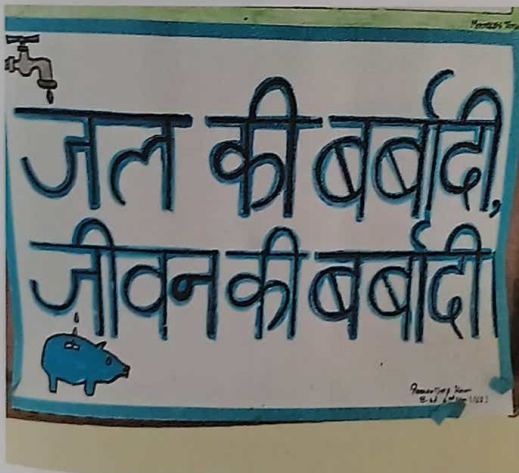 जल की बर्बादी,
जीवन की बर्बादी।